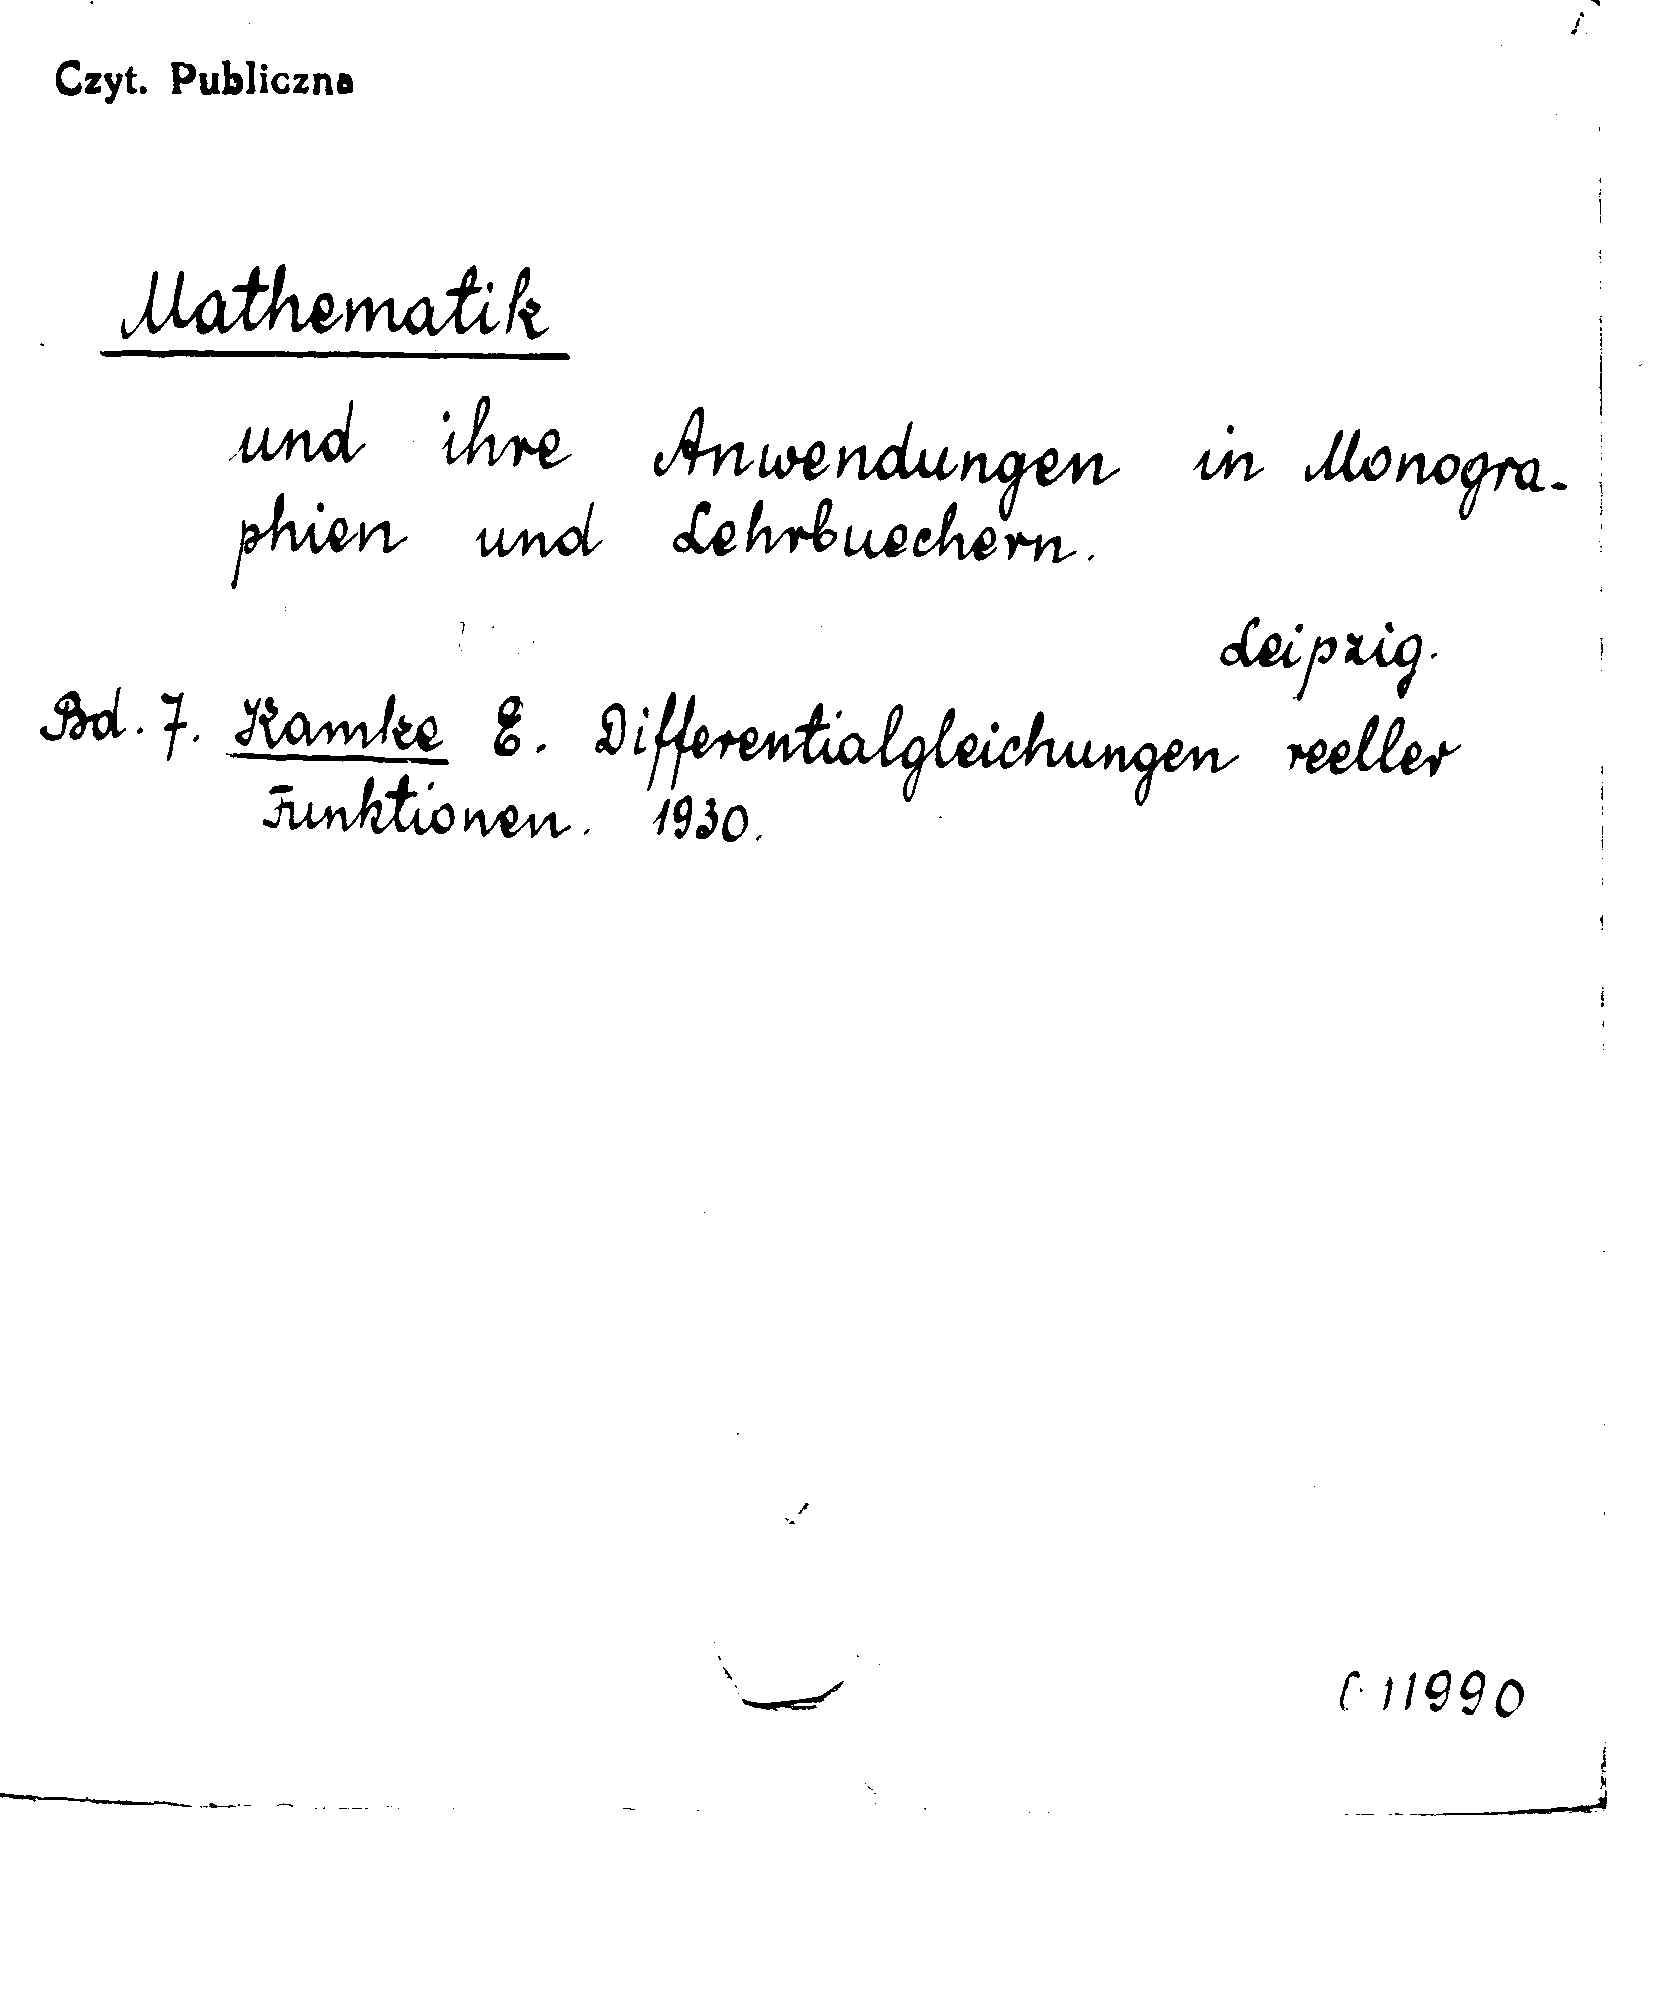 Czyt. Publiczna
Mathematik
und ihre Anwendungen in Monogra-
phien und Lehrbuechern.
Leipzig.
Bd. 7. Kamke E. Differentialgleichungen reeller
Funktionen. 1930.
11990